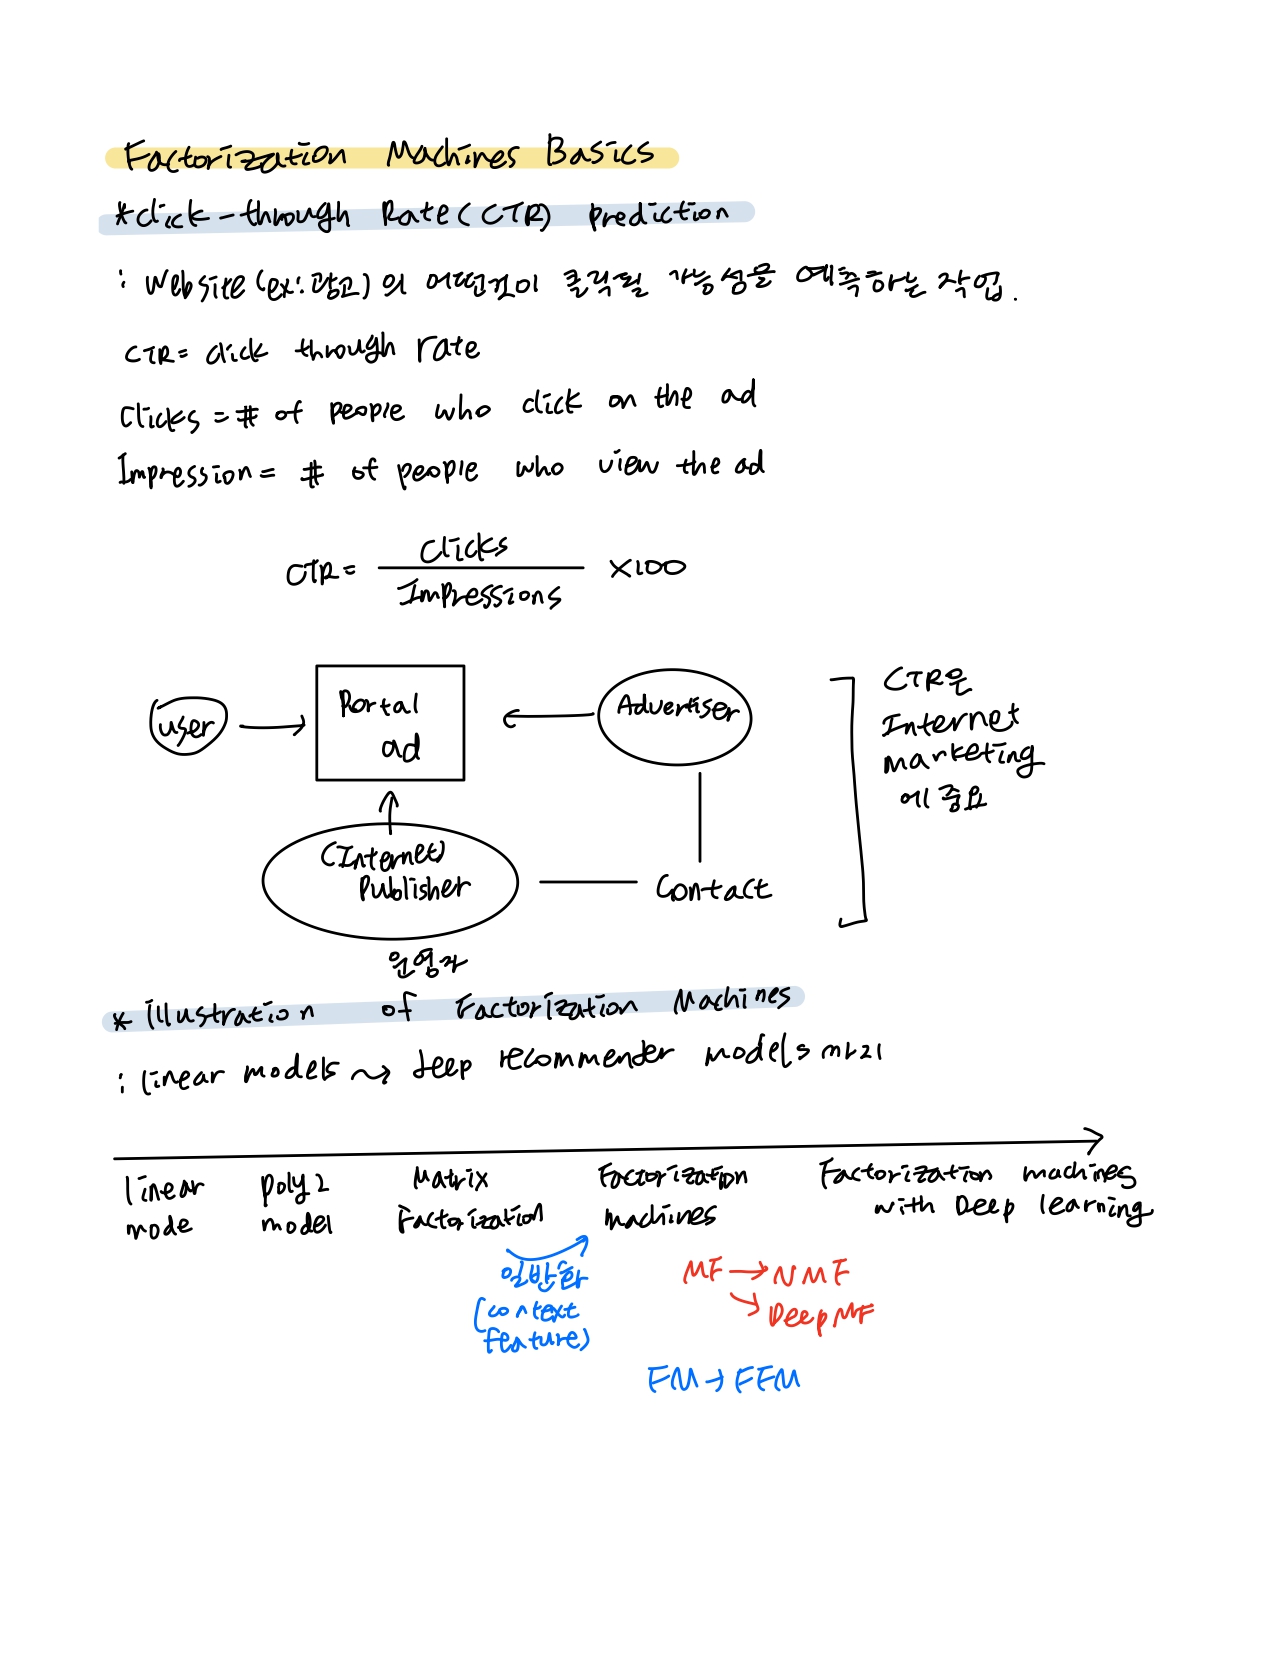 Factorization Machines Basics
*click-through Rate(CTR) prediction
: Website(ex:광고)의 어떤것이 클릭될 가능성을 예측하는 작업.
CTR= click through rate
Clicks = # of people who click on the ad
Impression= # of people who view the ad
CTR= Clicks / Impressions ×100
user
Portal
ad
Advertiser
(Internet)
Publisher
Contact
운영자
CTR은
Internet
marketing
에 중요
* Illustration of Factorization Machines
: linear models ~> deep recommender models까지
linear
mode
poly 2
model
Matrix
Factorization
Factorization
machines
Factorization machines
with Deep learning
일반화
(context
feature)
MF → NMF
→ Deep MF
FM → FFM